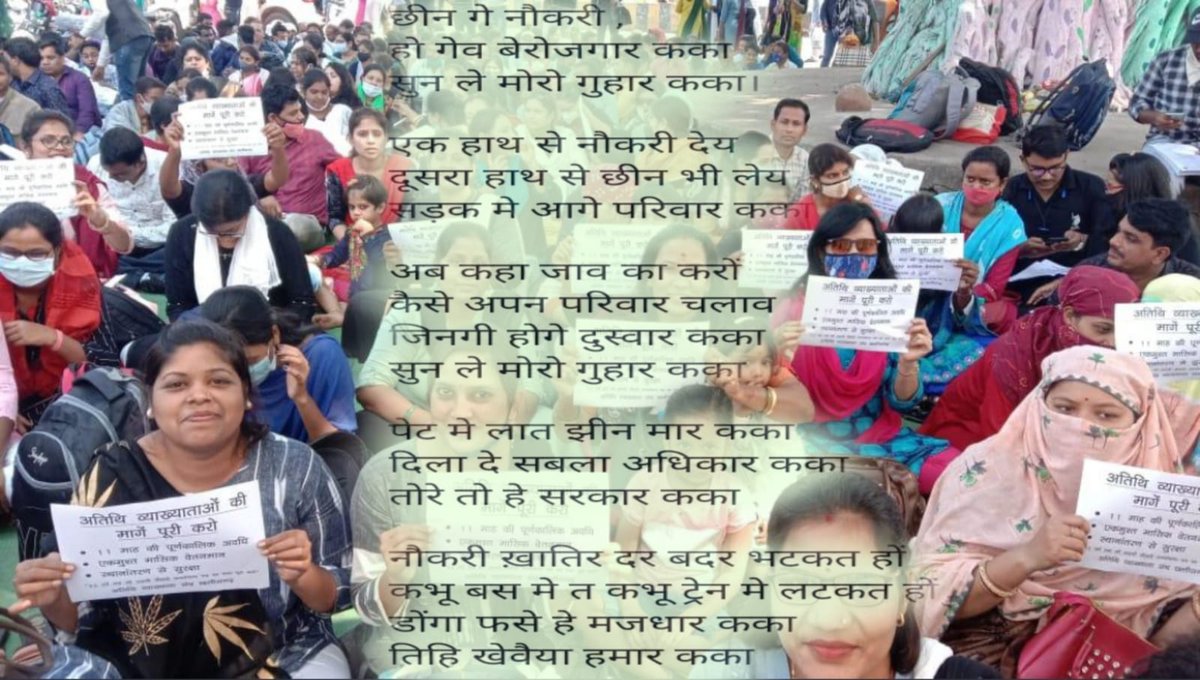 छीन गे नौकरी ,
हो गेव बेरोजगार कका
सुन ले मोरो गुहार कका।
एक हाथ से नौकरी देय
दूसरा हाथ से छीन भी लेय
सड़क मे आगे परिवार कका
अब कहा जाव का करों
कैसे अपन परिवार चलाव
जिनगी होगे दुस्वार कका
सुन ले मोरो गुहार कका
पेट मे लात झीन मार कका
दिला दे सबला अधिकार कका
तोरे तो हे सरकार कका
नौकरी ख़ातिर दर बदर भटकत हों
कभू बस मे त कभू ट्रेन मे लटकत हों
डोंगा फसे हे मजधार कका
तिहि खेवैया हमार कका
अतिथि व्याख्याताओं की
मागें पूरी करो
• 11 माह की पूर्णकालिक अवधि
• एकमुश्त मासिक वेतनमान
• स्थानांतरण से सुरक्षा
अतिथि व्याख्याताओं की
मागें पूरी करो
अतिथि व्याख्याताओं की
मागें पूरी करो
अतिथि व्याख्याताओं
मागें पूरी
• 11 माह की पूर्णकालिक
एकमुश्त मासिक वेतनमान
स्थानांतरण से सुरक्षा